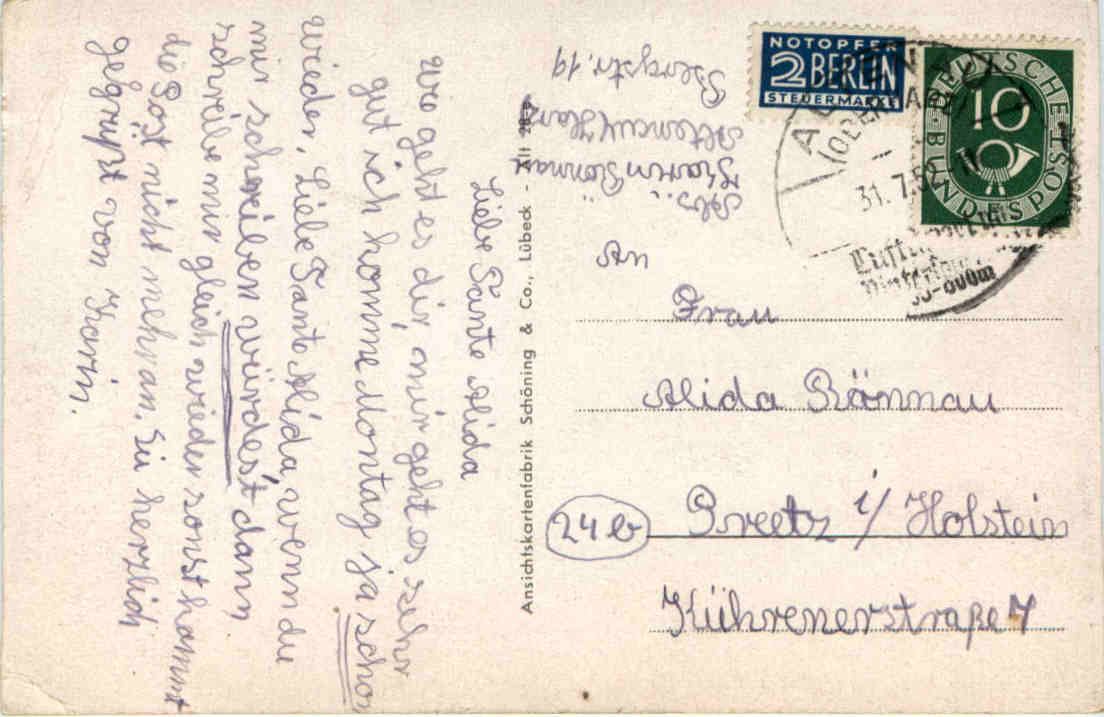 Liebe Tante Alida
Wie geht es dir, mir geht es sehr
gut ich komme Montag ja schon
wieder, Liebe Tante Alida, wenn du
mir schreiben würdest dann
schreibe mir gleich wieder sonst kommt
die Post nicht mehr an. Sei herzlich
gegrüßt von Karin.
Ansichtskartenfabrik Schöning & Co., Lübeck - Alt
Abs.:
Karin Rönnau
Altenau/Harz
Bergstr. 19
NOTOPFER
2 BERLIN
STEUERMARKE
DEUTSCHE
BUNDESPOST
10
ALTENAU
(OBERHARZ)
31.7.52
An
Frau
Alida Rönnau
24b Preetz i/Holstein
Kührenerstraße 7